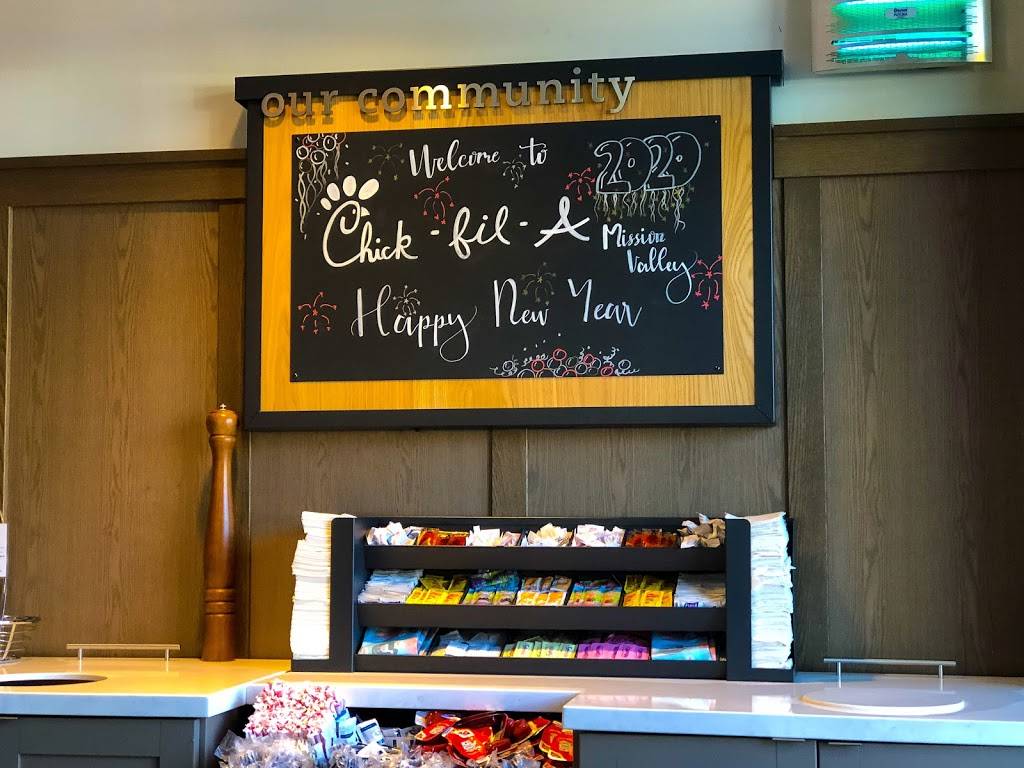 our community
Welcome to
2020
Chick-fil-A
Mission
Valley
Happy New Year